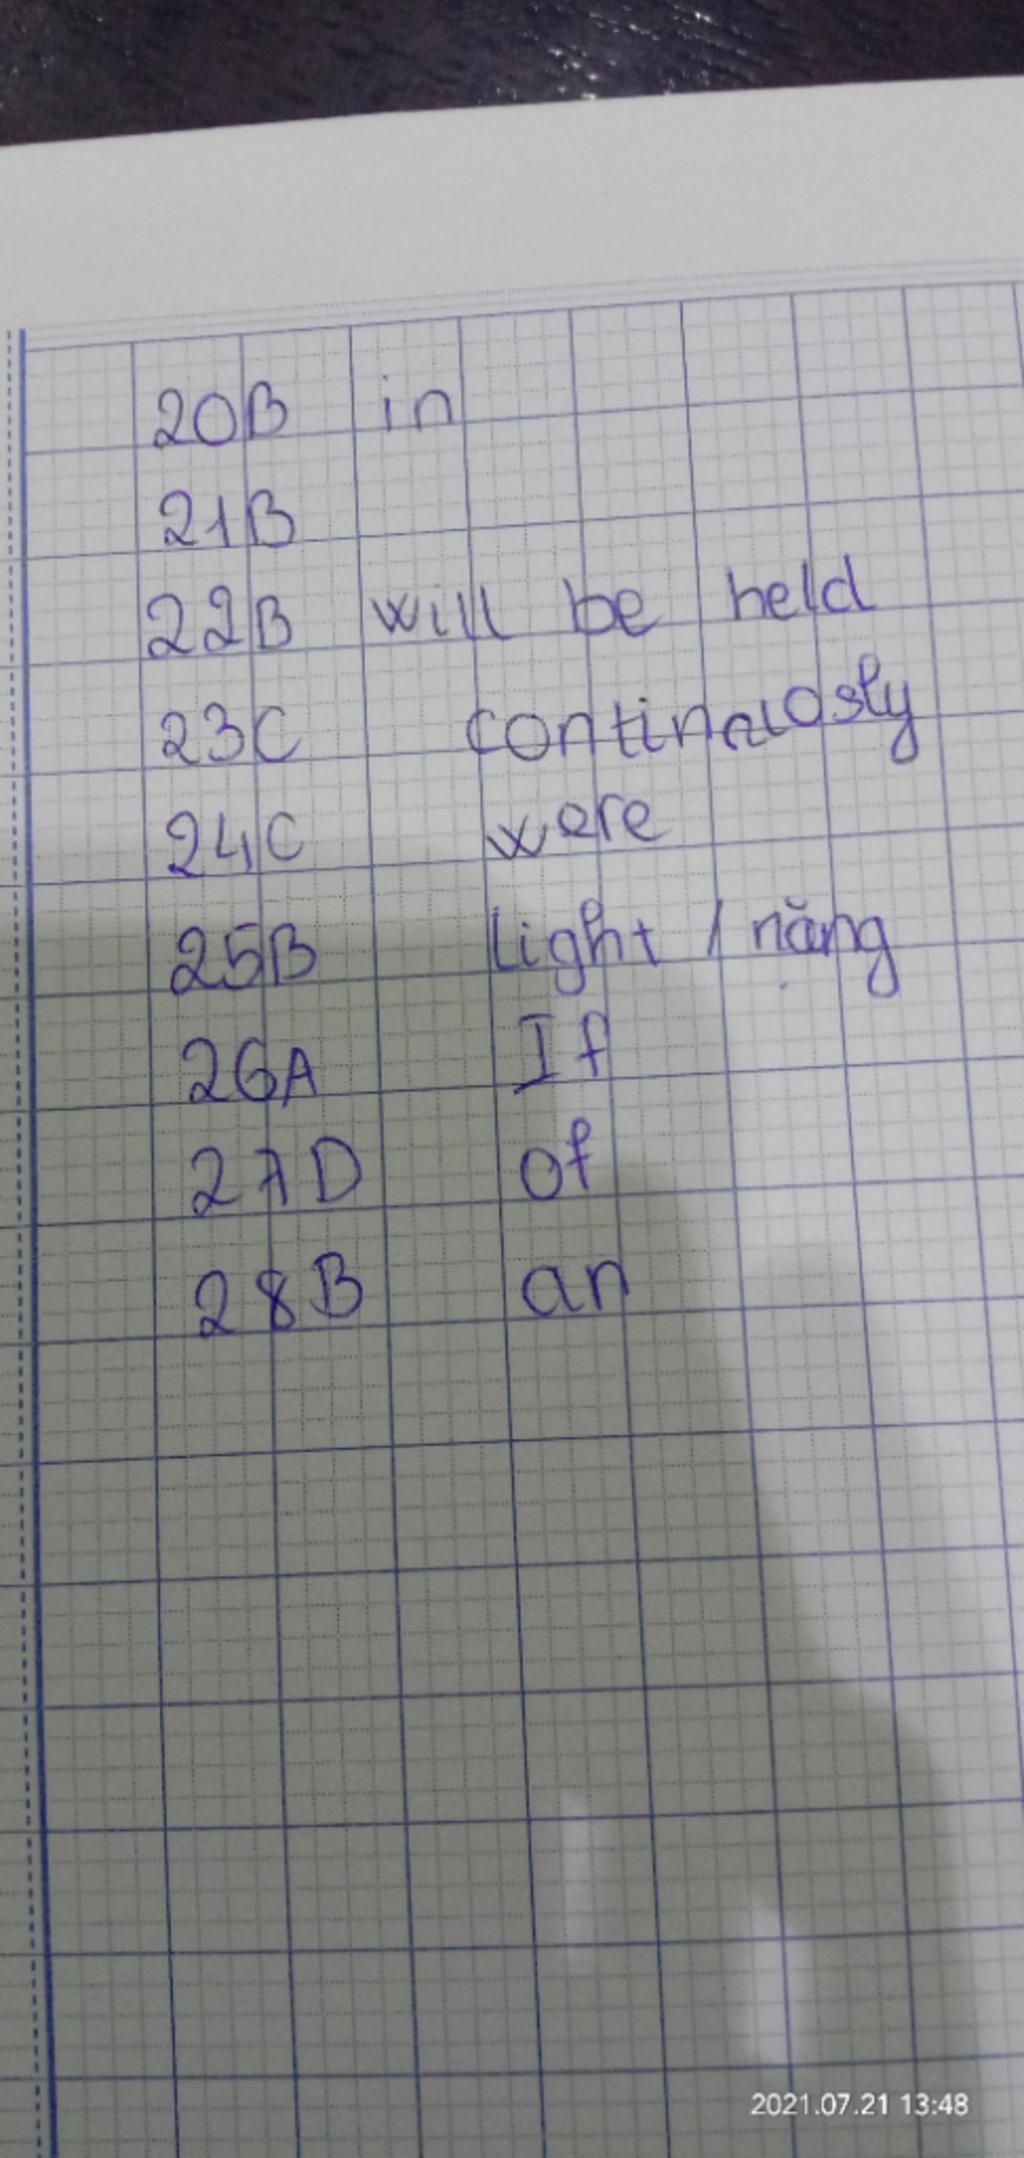 20B in
21B
22B will be held
23C continuosly
24C were
25B light / năng
26A If
27D of
28B an
2021.07.21 13:48